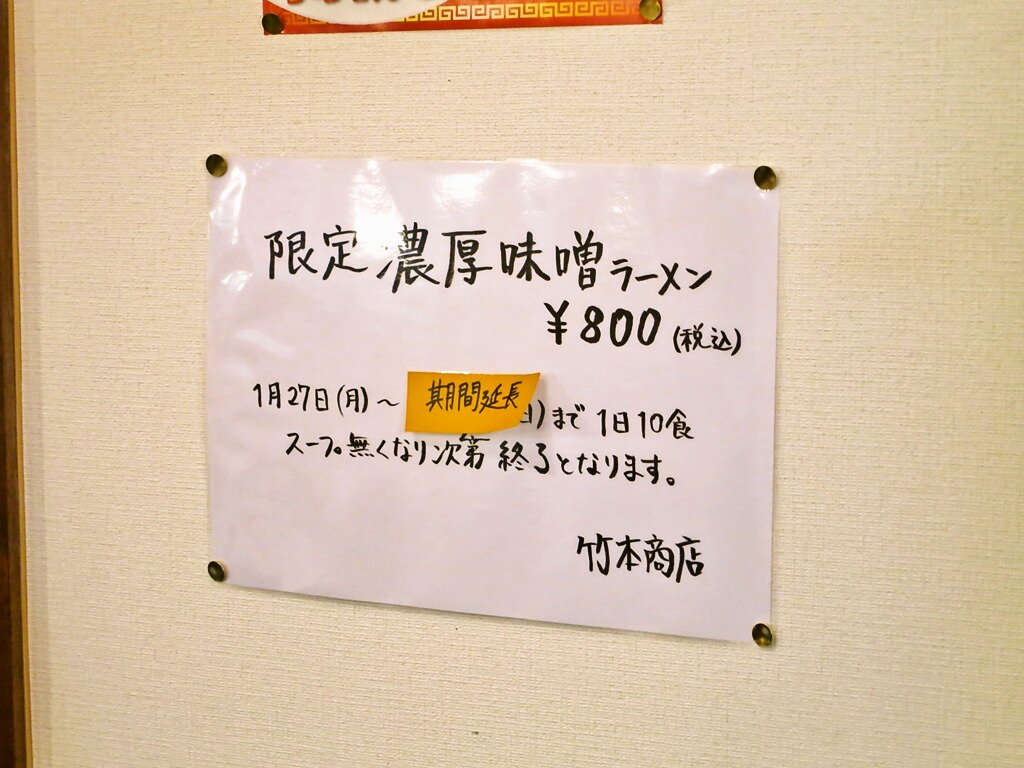 限定濃厚味噌ラーメン
¥800(税込)
1月27日(月)～ 期間延長 日)まで 1日10食
スープ無くなり次第 終了となります。
竹本商店